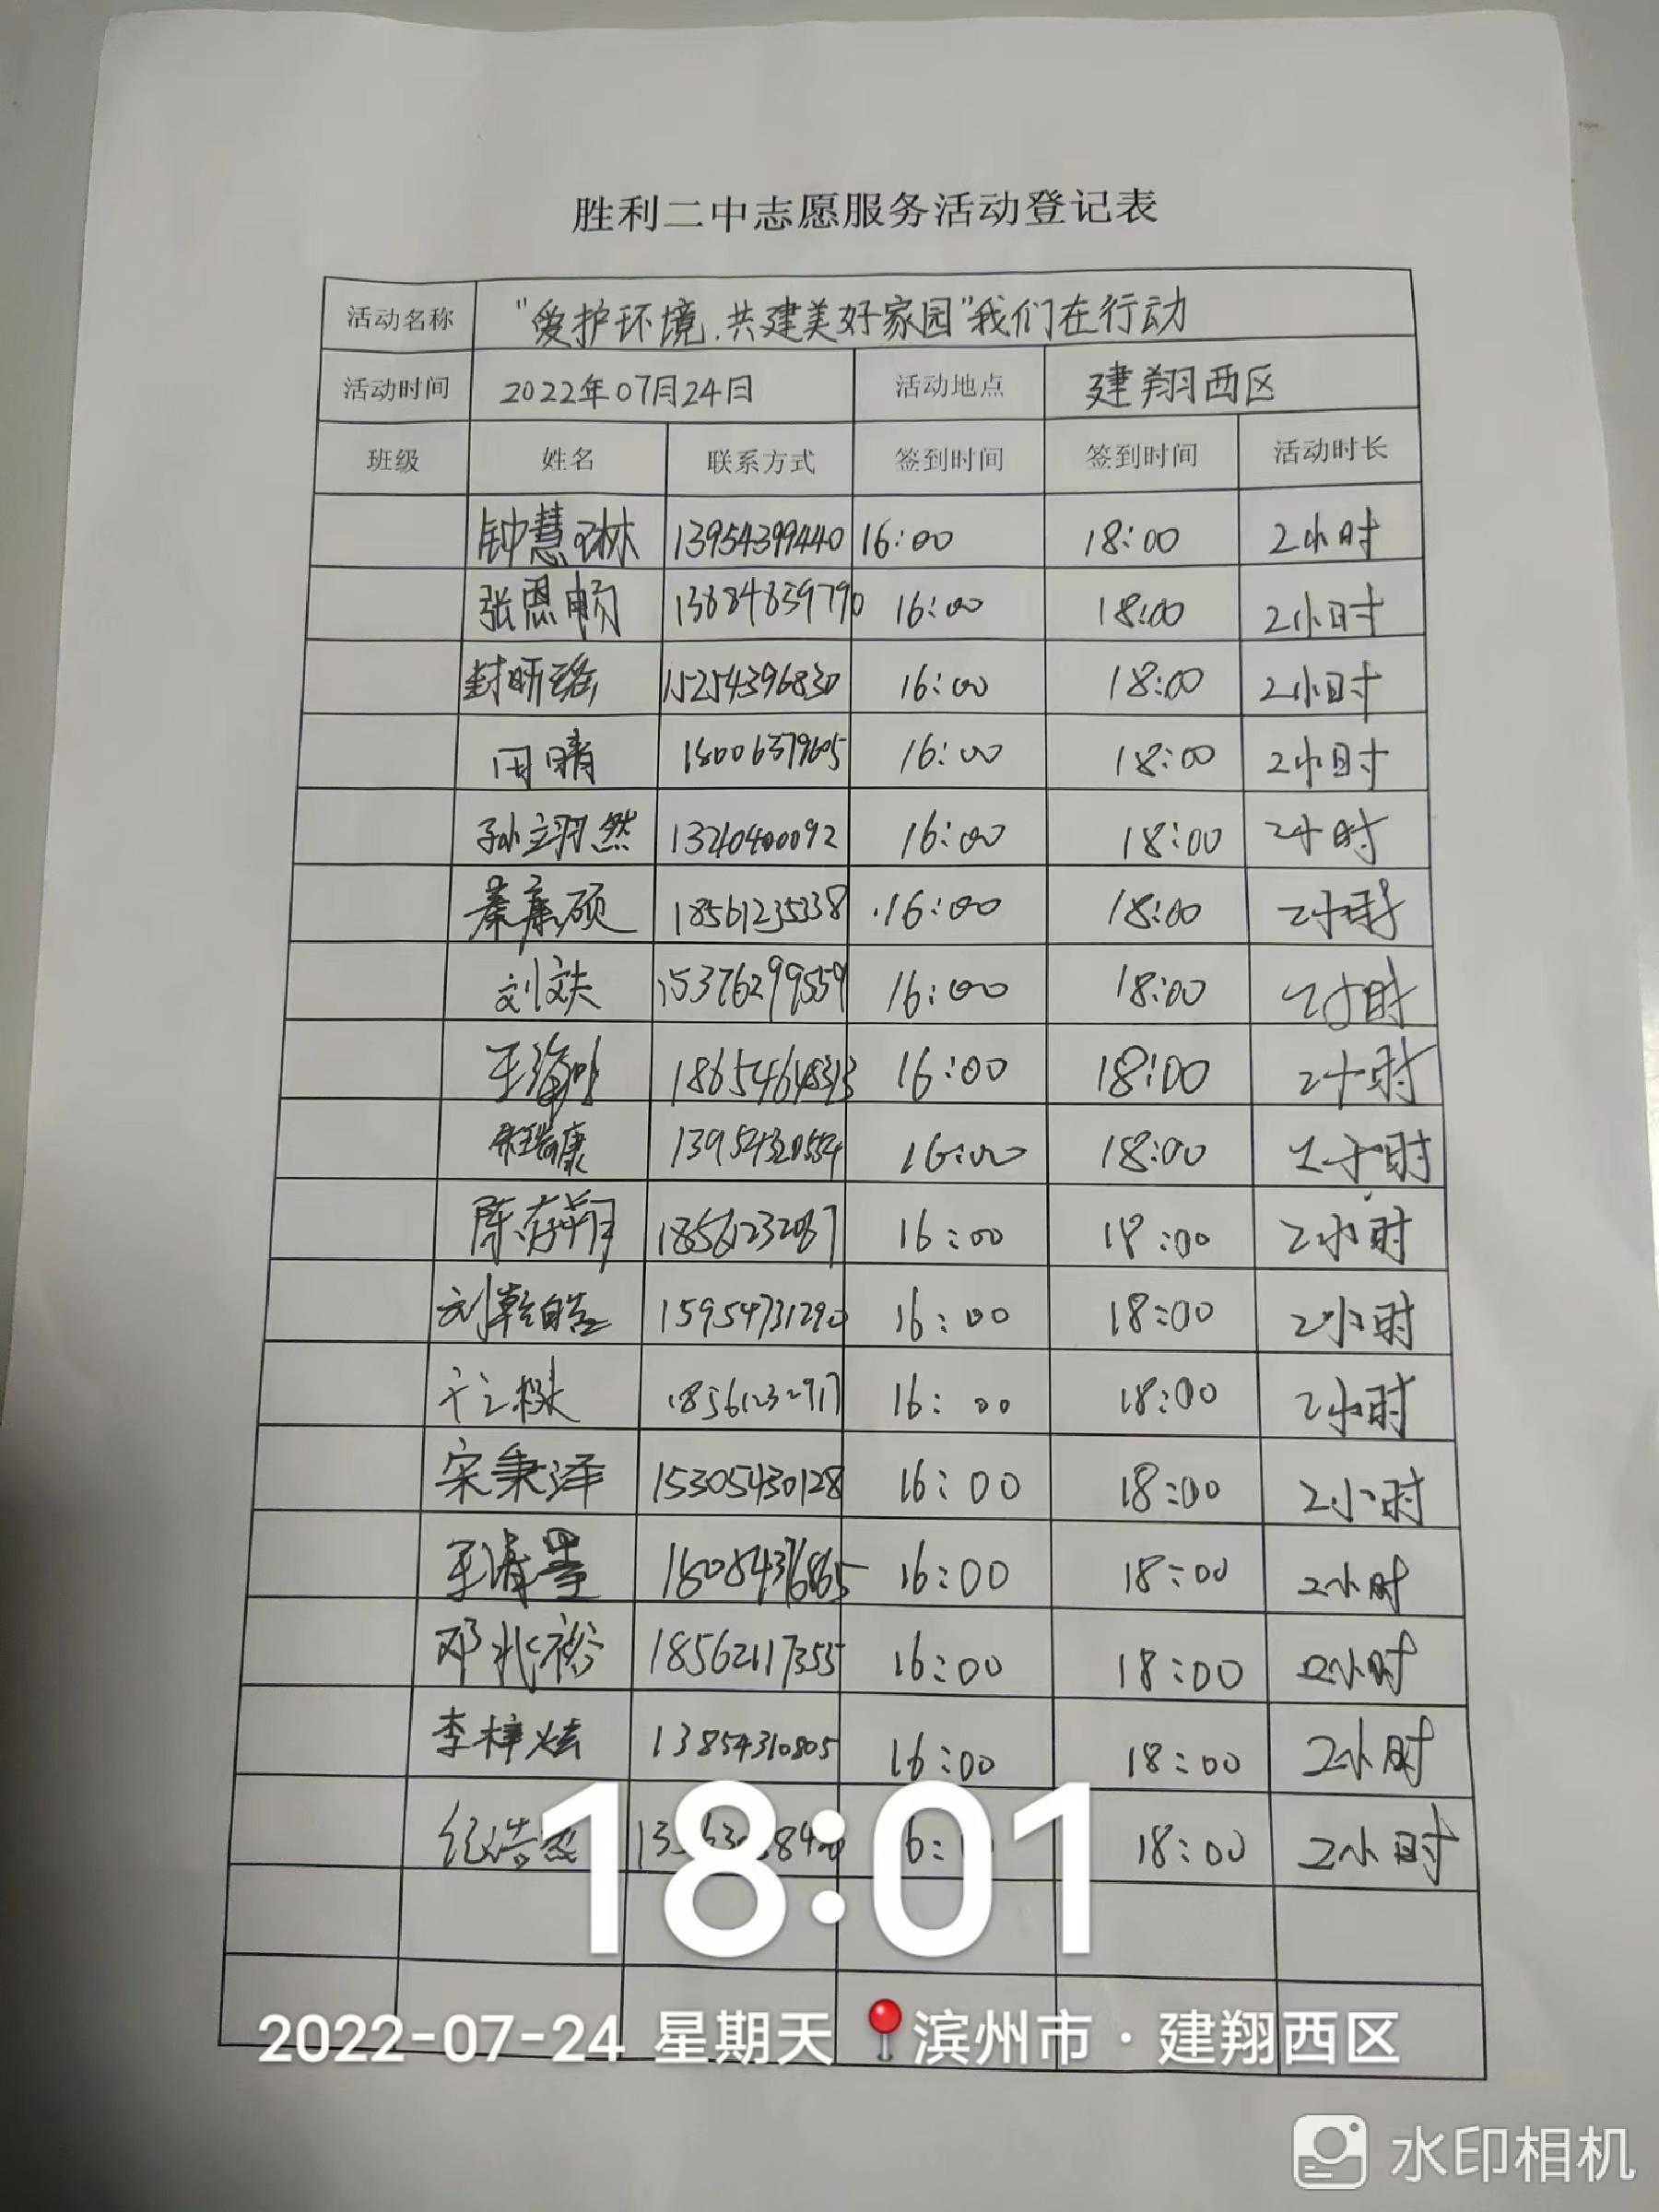 胜利二中志愿服务活动登记表
活动名称 "爱护环境.共建美好家园"我们在行动
活动时间 2022年07月24日 活动地点 建翔西区
班级 姓名 联系方式 签到时间 签到时间 活动时长
钟慧琳 13954399440 16:00 18:00 2小时
张恩畅 13884859790 16:00 18:00 2小时
封昕瑶 15254396830 16:00 18:00 2小时
田晴 18006379605 16:00 18:00 2小时
孙翊然 13210400092 16:00 18:00 2小时
18561235338 16:00 18:00 2小时
刘文夫 15376299559 16:00 18:00 2小时
18654648313 16:00 18:00 2小时
16:00 18:00 2小时
陈存翔 16:00 18:00 2小时
刘乾皓 15954731290 16:00 18:00 2小时
18561232917 16:00 18:00 2小时
宋秉泽 15305430128 16:00 18:00 2小时
16:00 18:00 2小时
邓兆裕 18562117355 16:00 18:00 2小时
李梓炫 13854310805 16:00 18:00 2小时
18:00 2小时
18:01
2022-07-24 星期天 滨州市·建翔西区
水印相机